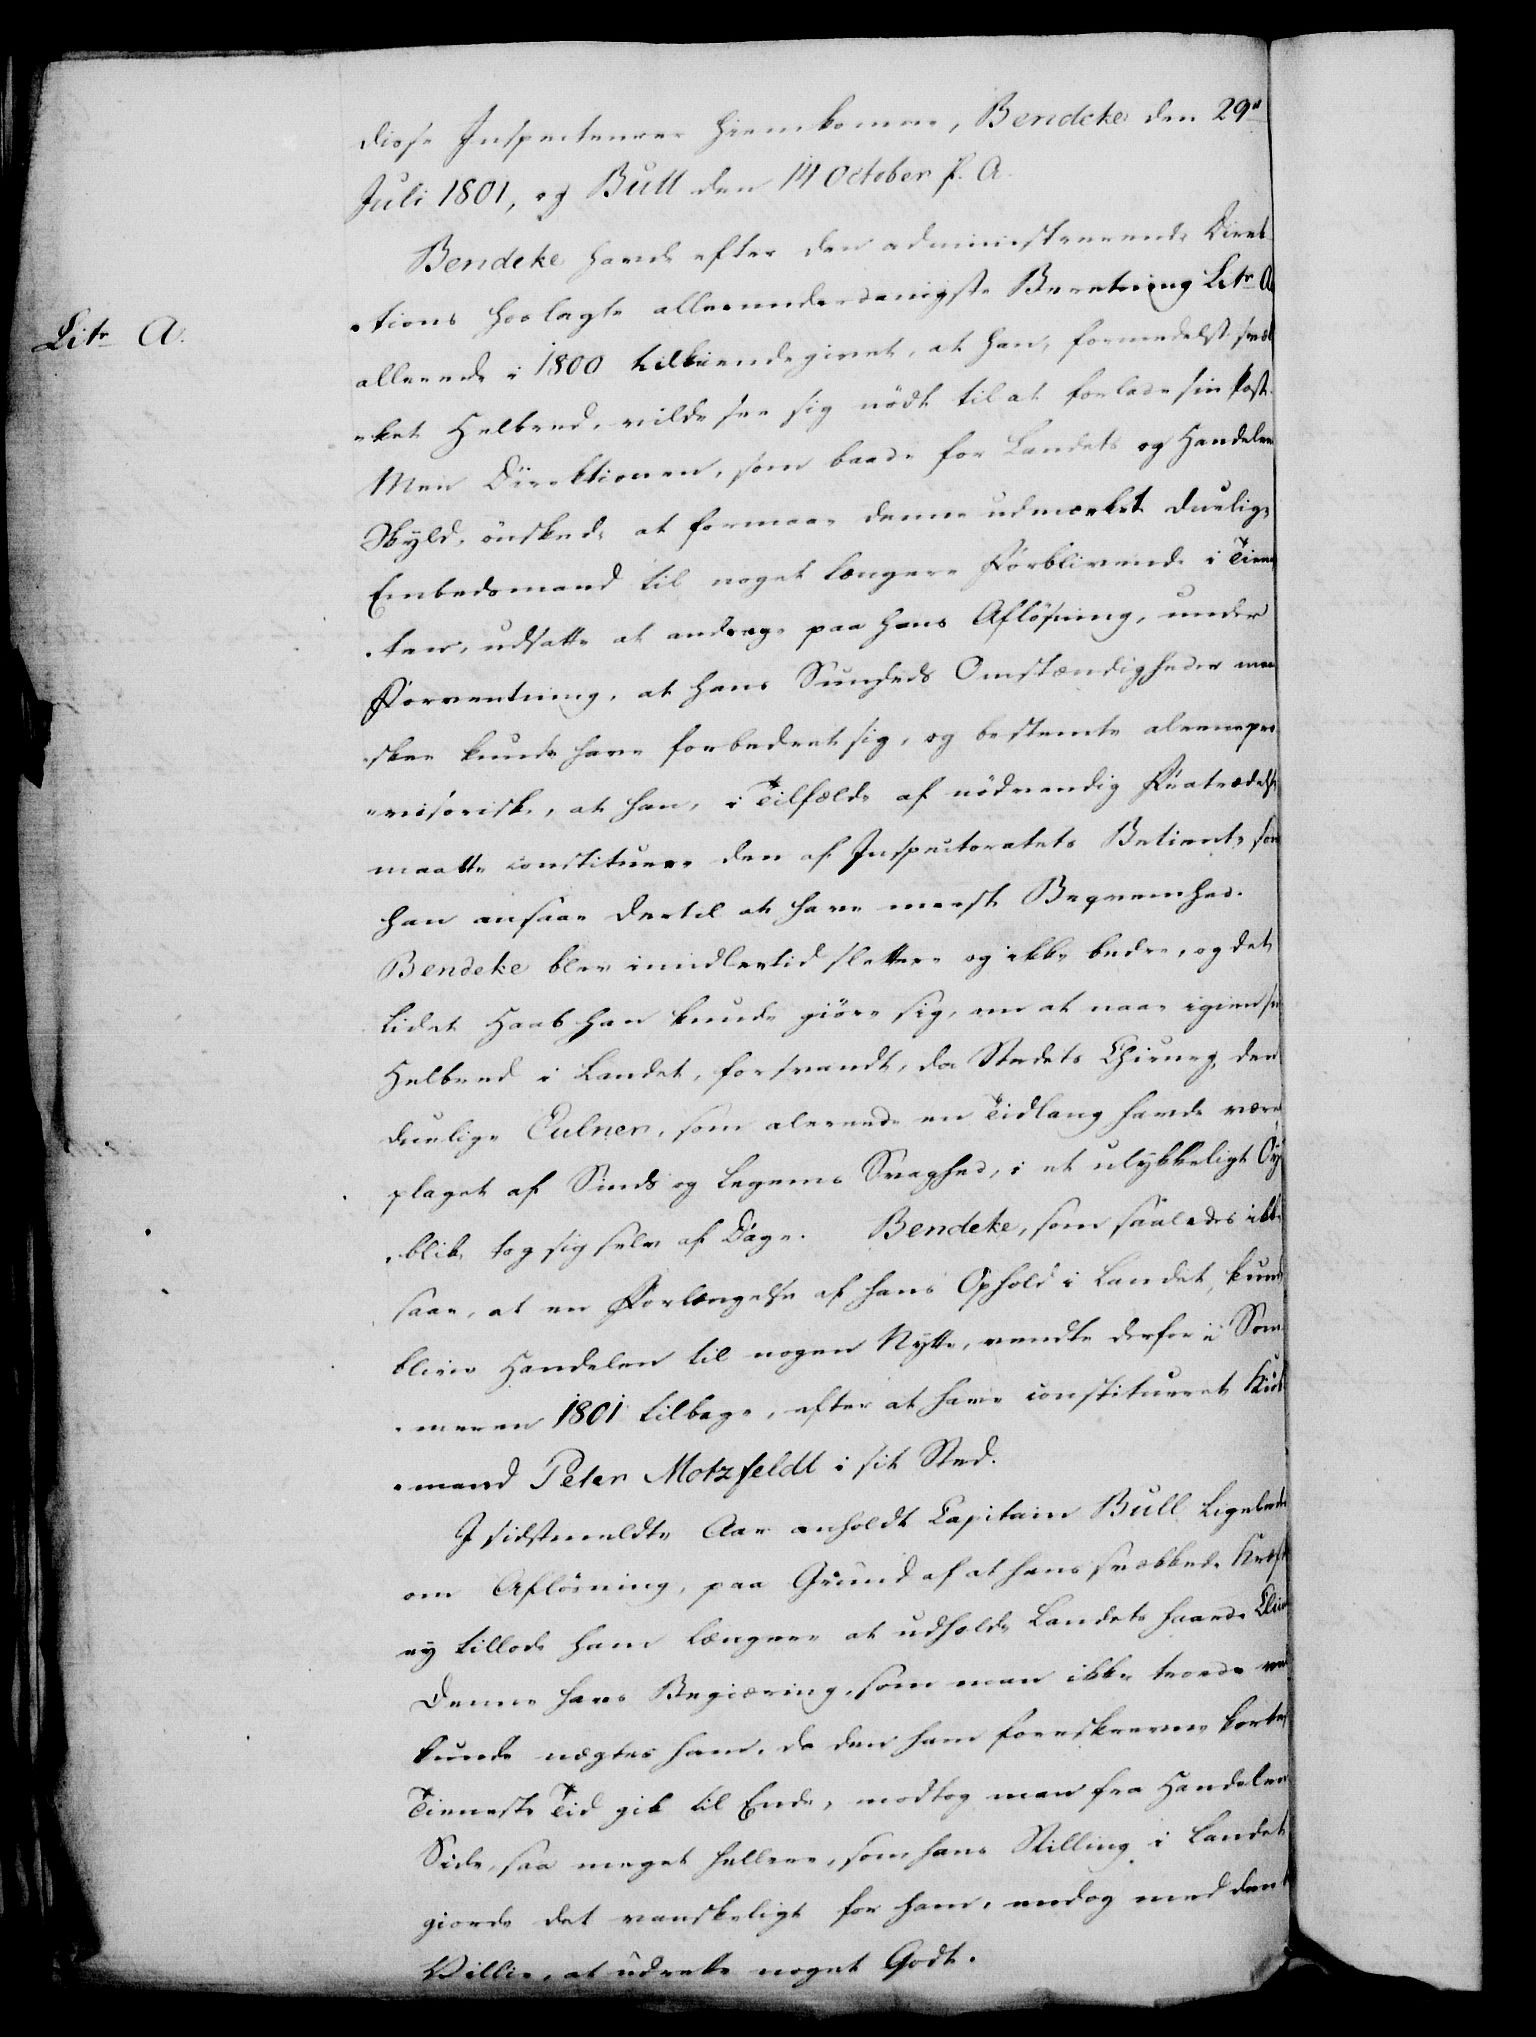 disse Inspecteurer hiemkomne, Bendeke den 29de
Juli 1801, og Bull den 14 October s. A.
Bendeke havde efter den administrerende Direk-
-tions hoslagte allerunderdanigste Beretning Litr A
Litr A.
allerede i 1800 tilkiendegivet, at han, formedelst svæk-
-ket Helbred, vilde see sig nödt til at forlade sin Post.
Men Direktionen, som baade for Landets og Handelens
Skyld, önskede at formaae denne udmærket duelige
Embedsmand til noget længere Forblivende i Tienes-
-ten, udsatte at andrage paa hans Aflösning, under
Forventning, at hans Sundheds Omstændigheder maa-
-skee kunde have forbedret sig, og bestemte alene pro-
-visorisk, at han, i Tilfælde af nödvendig Fratrædelse
maatte constituere den af Inspectoratets Betiente, som
han ansaae dertil at have meest Beqvemhed.
Bendeke blev imidlertid slettere og ikke bedre, og det
lidet Haab han kunde giöre sig, om at naae igien sin
Helbred i Landet, forsvandt, da Stedets Chirurg, den
duelige Eulner, som allerede en Tidlang havde været
plaget af Sinds og Legems Svaghed, i et ulykkeligt Øye-
-blik tog sig selv af Dage. Bendeke, som saaledes ikke
saae, at en Forlængelse af hans Ophold i Landet, kunde
blive Handelen til nogen Nytte, vendte derfor i Som-
-meren 1801 tilbage, efter at have constitueret Kiöb-
-mand Peter Motzfeldt i sit Sted.
I sidstmeldte Aar anholdt Capitain Bull ligeledes
om Aflösning, paa Grund af at hans svækkede Kræfter
ey tillode ham længere at udholde Landets haarde Clima
Denne hans Begiæring, som man ikke troede
kunde nægtes ham, da den ham foreskrevne korte
Tieneste Tid gik til Ende, modtog man fra Handelens
Side, saa meget hellere, som hans Stilling i Landet
giorde det vanskeligt for ham, endog med den
Villie, at udrette noget Godt.